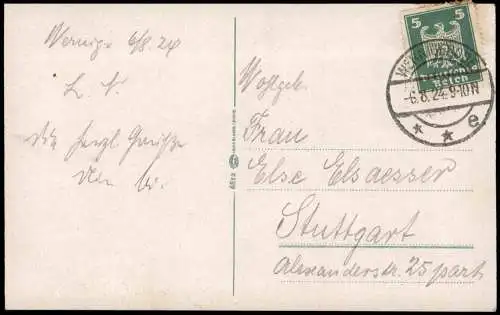 Wernig. 6/8.24
L. V.
Die herzl. Grüße
Dein
5 5
Deutsches
Reich
-6.8.24.9-10N
* * e
Wohlgeb.
Frau
Else Elsaesser
Stuttgart
Alexanderstr. 25 part.